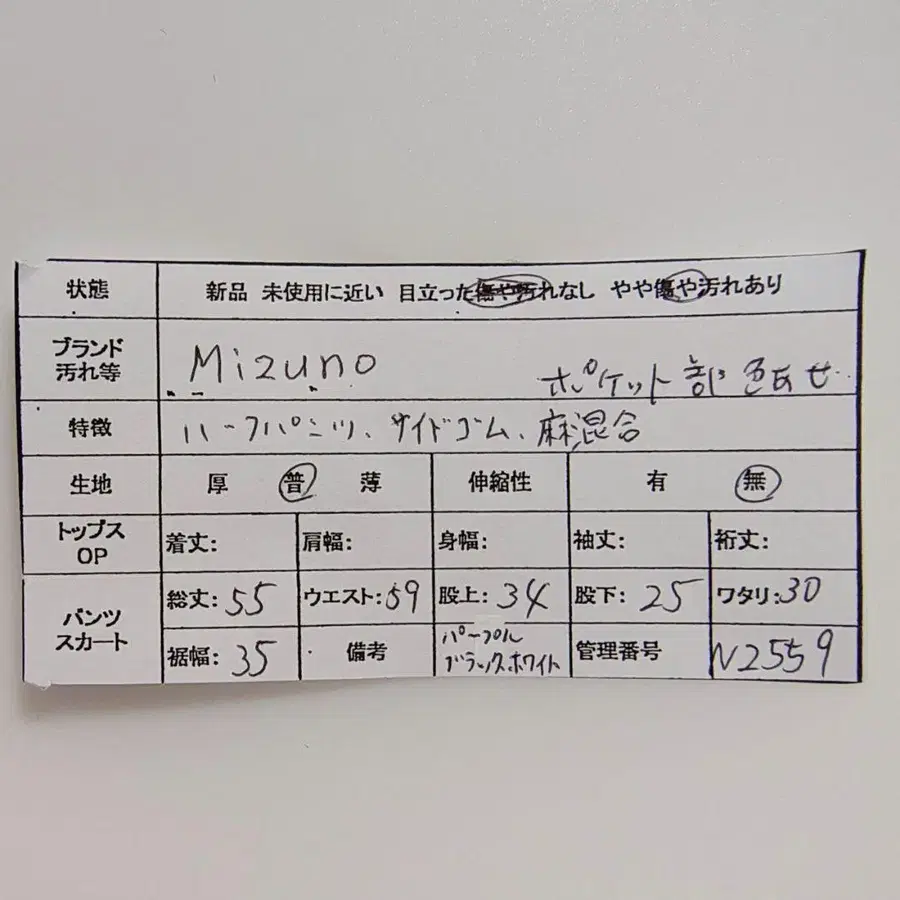 状態 新品 未使用に近い 目立った傷や汚れなし やや傷や汚れあり
ブランド 汚れ等 Mizuno ポケット部色あせ
特徴 ハーフパンツ、サイドゴム、麻混合
生地 厚 普 薄 伸縮性 有 無
トップス OP 着丈: 肩幅: 身幅: 袖丈: 裄丈:
パンツ スカート 総丈:55 ウエスト:59 股上:34 股下:25 ワタリ:30
裾幅:35 備考 パープル ブラック、ホワイト 管理番号 N2559